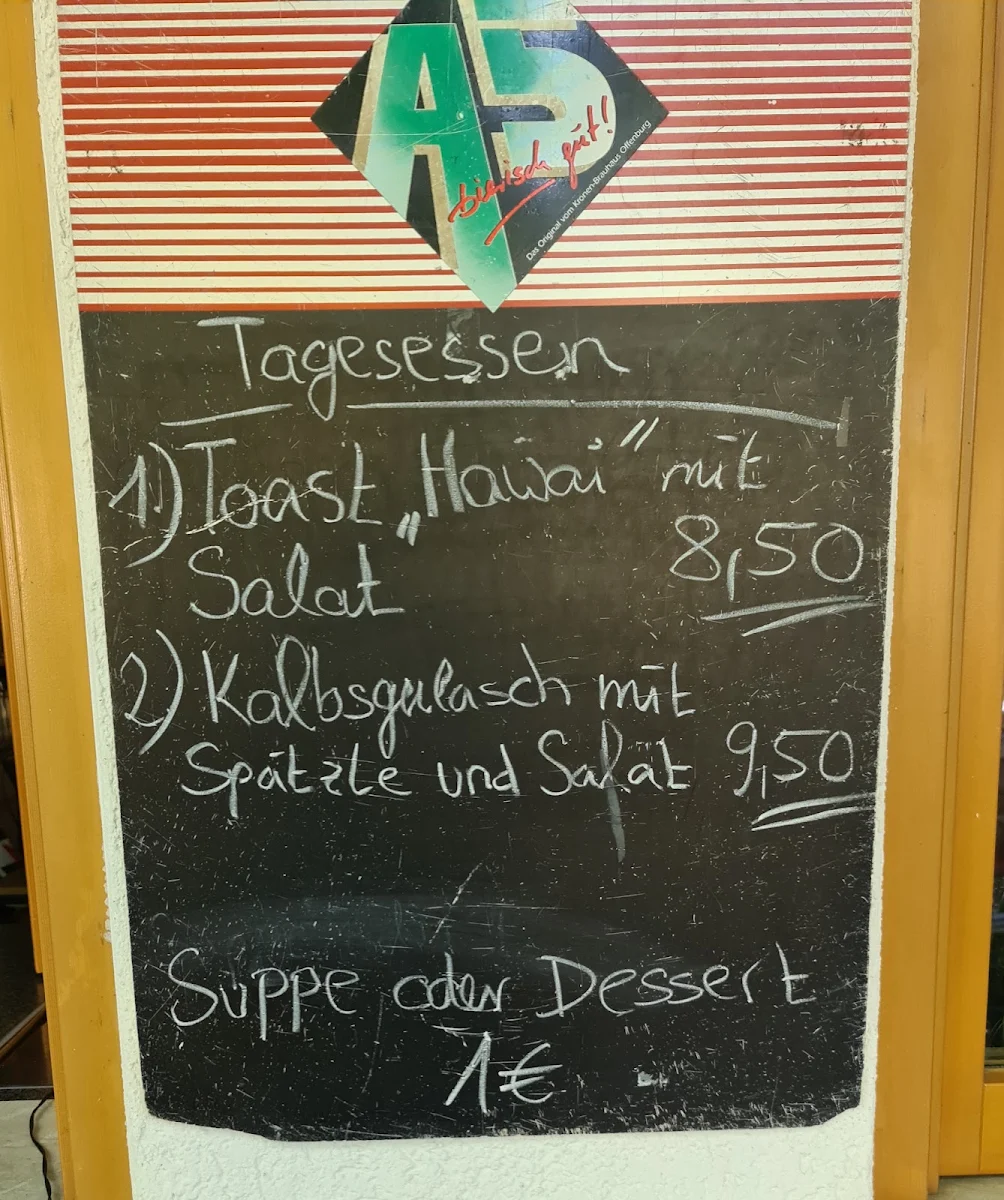 A5
bierisch gut!
Das Original vom Kronen-Brauhaus Offenburg
Tagesessen
1) Toast „Hawai" mit
Salat 8,50
2) Kalbsgulasch mit
Spätzle und Salat 9,50
Suppe oder Dessert
1€